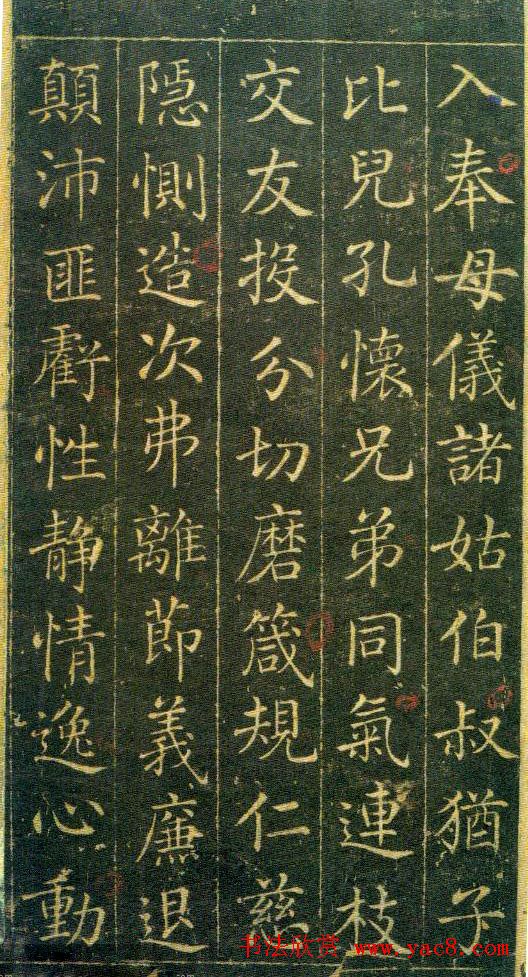 入奉母儀諸姑伯叔猶子
比兒孔懷兄弟同氣連枝
交友投分切磨箴規仁慈
隱惻造次弗離節義廉退
顛沛匪虧性静情逸心動
书法欣赏 www.yac8.com